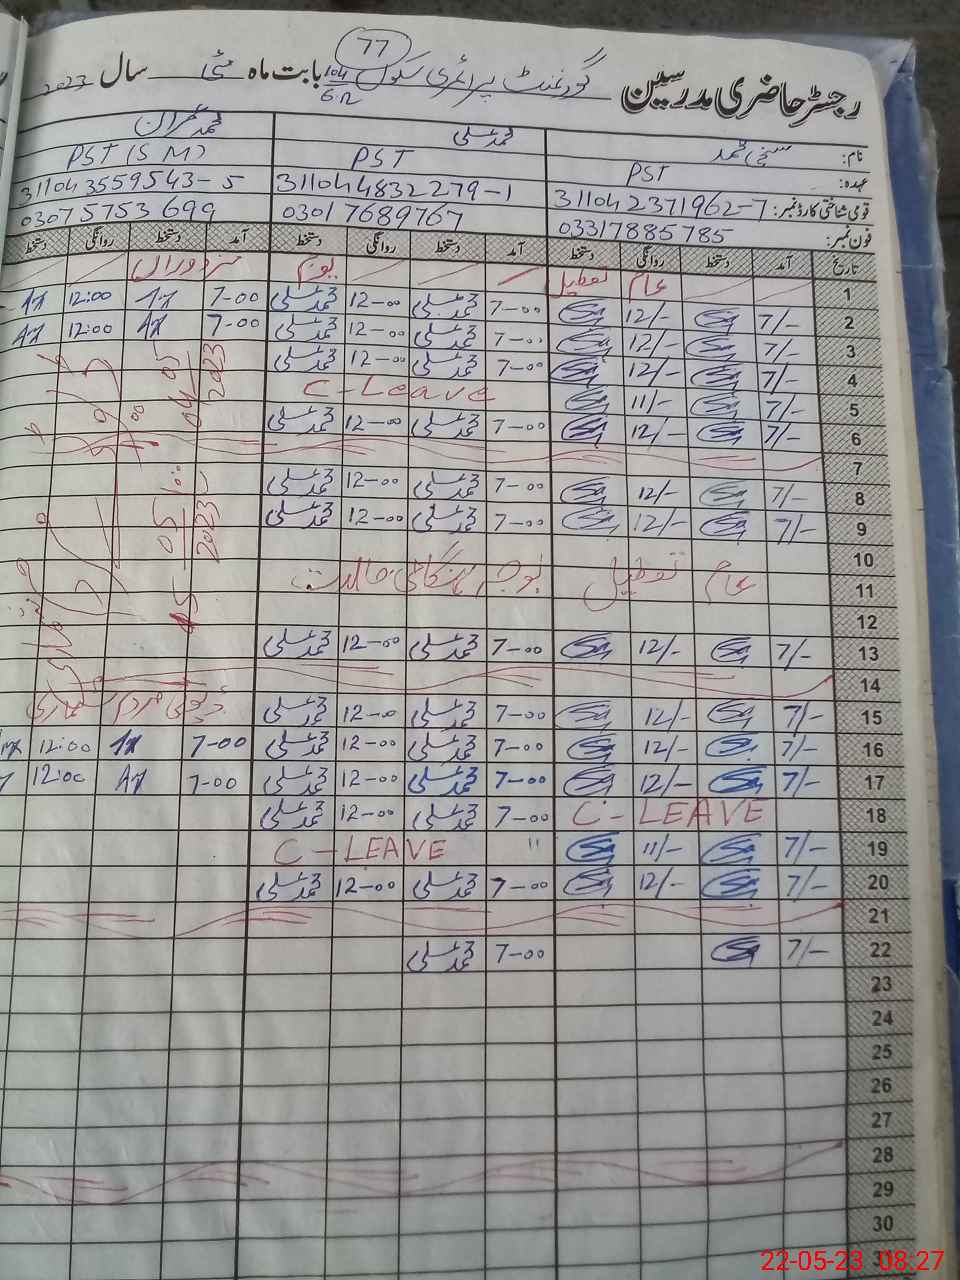 77
رجسٹر حاضری مدرسین گورنمنٹ پرائمری سکول 104/6R بابت ماہ مئی سال 2023
نام: سخی محمد محمد علی محمد عمران
عہدہ: PST PST PST (SM)
قومی شناختی کارڈ نمبر: 31104 2371962-7 31104 4832279-1 31104 3559543-5
فون نمبر: 03317885785 03017689767 03075753699
تاریخ آمد دستخط روانگی دستخط آمد دستخط روانگی دستخط آمد دستخط روانگی دستخط
1 عام تعطیل یوم مزدوراں
2 7/- 12/- 7-00 محمد علی 12-00 محمد علی 7-00 12:00
3 7/- 12/- 7-00 محمد علی 12-00 محمد علی 7-00 12:00
4 7/- 12/- 7-00 محمد علی 12-00 محمد علی
5 7/- 11/- C-Leave
6 7/- 12/- 7-00 محمد علی 12-00 محمد علی
7
8 7/- 12/- 7-00 محمد علی 12-00 محمد علی
9 7/- 12/- 7-00 محمد علی 12-00 محمد علی
10
11 عام تعطیل بوجہ ہنگامی حالات
12
13 7/- 12/- 7-00 محمد علی 12-00 محمد علی
14
15 7/- 12/- 7-00 محمد علی 12-00 محمد علی ڈیوٹی مردم شماری
16 7/- 12/- 7-00 محمد علی 12-00 محمد علی 7-00 12:00
17 7/- 12/- 7-00 محمد علی 12-00 محمد علی 7-00 12:00
18 C-LEAVE 7-00 محمد علی 12-00 محمد علی
19 7/- 11/- 11 C-LEAVE
20 7/- 12/- 7-00 محمد علی 12-00 محمد علی
21
22 7/- 7-00 محمد علی
23
24
25
26
27
28
29
30
22-05-23 08:27